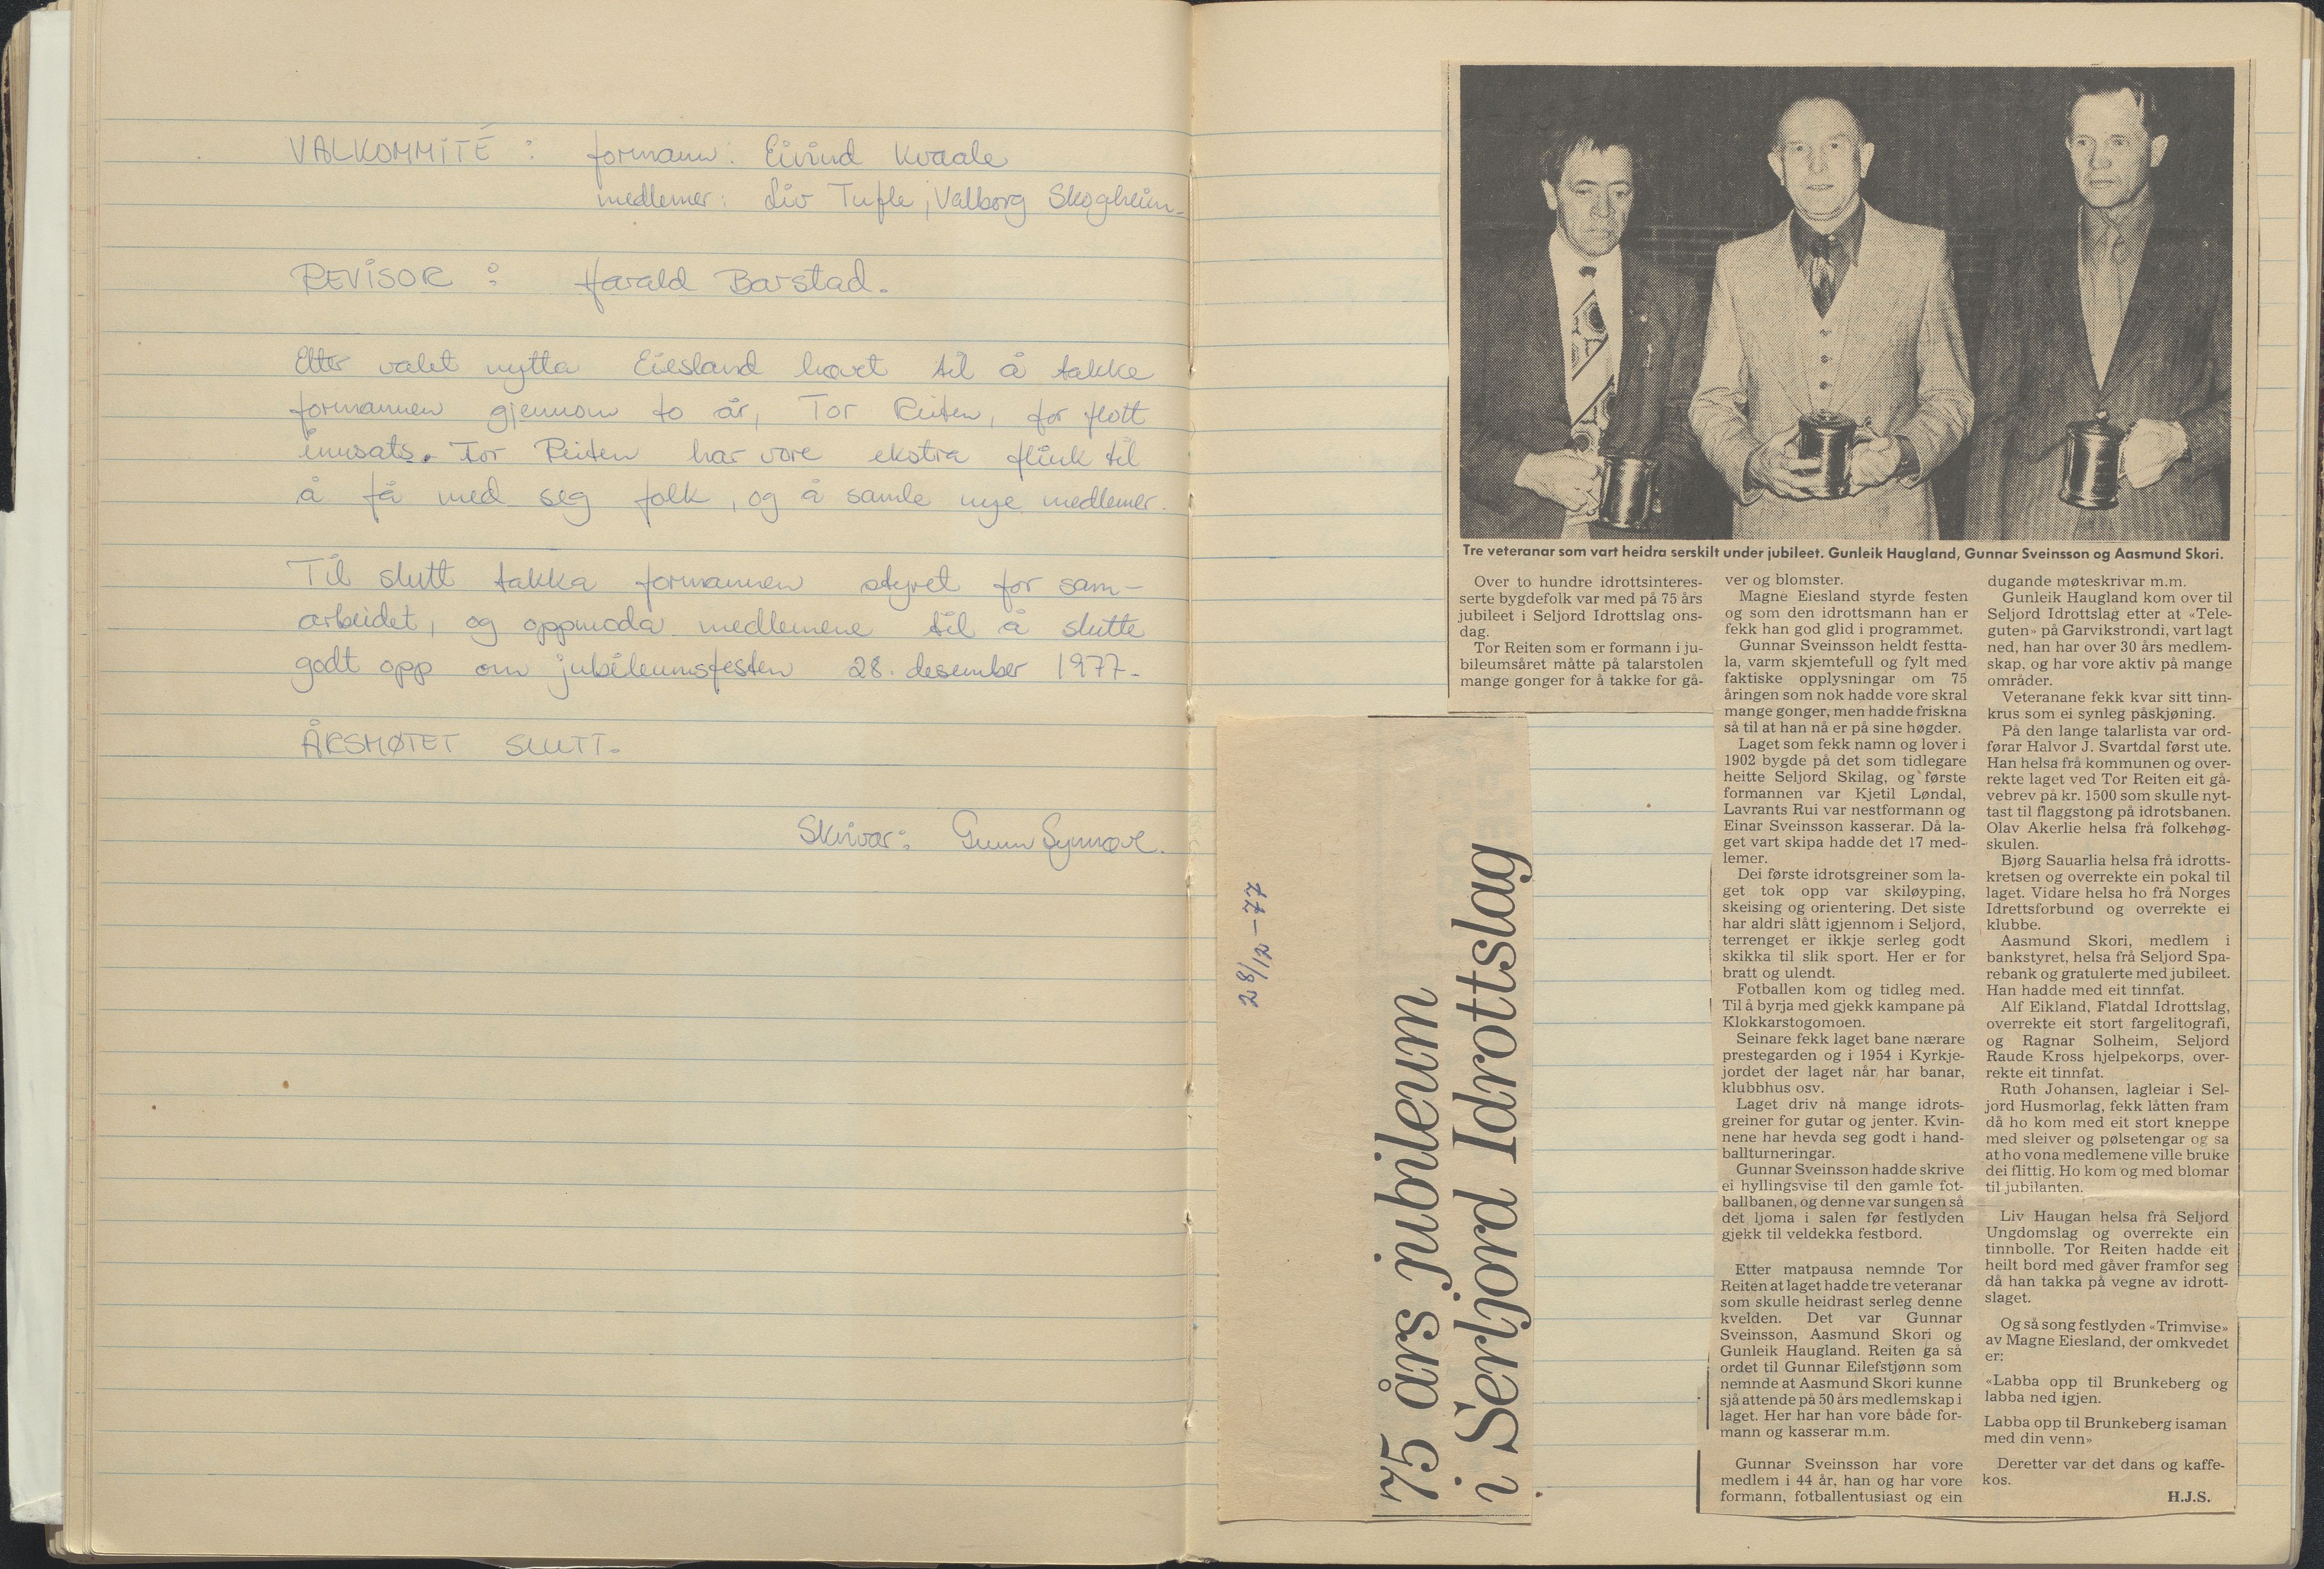 VALKOMMITÉ : formann: Eivind Kvaale
medlemer: Liv Tufte, Valborg Skogheim.
REVISOR : Harald Barstad.
Etter valet nytta Eiesland høvet til å takke
formannen gjennom to år, Tor Reiten, for flott
innsats. Tor Reiten har vore ekstra flink til
å få med seg folk, og å samle nye medlemer.
Til slutt takka formannen styret for sam-
arbeidet, og oppmoda medlemene til å slutte
godt opp om jubileumsfesten 28. desember 1977.
ÅRSMØTET SLUTT.
Skrivar: Gunn Synnøve.
28/12-77
75 års jubileum
i Serljord Idrottslag
Tre veteranar som vart heidra serskilt under jubileet. Gunleik Haugland, Gunnar Sveinsson og Aasmund Skori.
Over to hundre idrottsinteres-
serte bygdefolk var med på 75 års
jubileet i Seljord Idrottslag ons-
dag.
Tor Reiten som er formann i ju-
bileumsåret måtte på talarstolen
mange gonger for å takke for gå-
ver og blomster.
Magne Eiesland styrde festen
og som den idrottsmann han er
fekk han god glid i programmet.
Gunnar Sveinsson heldt festta-
la, varm skjemtefull og fylt med
faktiske opplysningar om 75
åringen som nok hadde vore skral
mange gonger, men hadde friskna
så til at han nå er på sine høgder.
Laget som fekk namn og lover i
1902 bygde på det som tidlegare
heitte Seljord Skilag, og første
formannen var Kjetil Løndal,
Lavrants Rui var nestformann og
Einar Sveinsson kasserar. Då la-
get vart skipa hadde det 17 med-
lemer.
Dei første idrotsgreiner som la-
get tok opp var skiløyping,
skeising og orientering. Det siste
har aldri slått igjennom i Seljord,
terrenget er ikkje serleg godt
skikka til slik sport. Her er for
bratt og ulendt.
Fotballen kom og tidleg med.
Til å byrja med gjekk kampane på
Klokkarstogomoen.
Seinare fekk laget bane nærare
prestegarden og i 1954 i Kyrkje-
jordet der laget når har banar,
klubbhus osv.
Laget driv nå mange idrots-
greiner for gutar og jenter. Kvin-
nene har hevda seg godt i hand-
ballturneringar.
Gunnar Sveinsson hadde skrive
ei hyllingsvise til den gamle fot-
ballbanen, og denne var sungen så
det ljoma i salen før festlyden
gjekk til veldekka festbord.
Etter matpausa nemnde Tor
Reiten at laget hadde tre veteranar
som skulle heidrast serleg denne
kvelden. Det var Gunnar
Sveinsson, Aasmund Skori og
Gunleik Haugland. Reiten ga så
ordet til Gunnar Eilefstjønn som
nemnde at Aasmund Skori kunne
sjå attende på 50 års medlemskap i
laget. Her har han vore både for-
mann og kasserar m.m.
Gunnar Sveinsson har vore
medlem i 44 år, han og har vore
formann, fotballentusiast og ein
dugande møteskrivar m.m.
Gunleik Haugland kom over til
Seljord Idrottslag etter at «Tele-
guten» på Garvikstrondi, vart lagt
ned, han har over 30 års medlem-
skap, og har vore aktiv på mange
områder.
Veteranane fekk kvar sitt tinn-
krus som ei synleg påskjøning.
På den lange talarlista var ord-
førar Halvor J. Svartdal først ute.
Han helsa frå kommunen og over-
rekte laget ved Tor Reiten eit gå-
vebrev på kr. 1500 som skulle nyt-
tast til flaggstong på idrotsbanen.
Olav Akerlie helsa frå folkehøg-
skulen.
Bjørg Sauarlia helsa frå idrotts-
kretsen og overrekte ein pokal til
laget. Vidare helsa ho frå Norges
Idrettsforbund og overrekte ei
klubbe.
Aasmund Skori, medlem i
bankstyret, helsa frå Seljord Spa-
rebank og gratulerte med jubileet.
Han hadde med eit tinnfat.
Alf Eikland, Flatdal Idrottslag,
overrekte eit stort fargelitografi,
og Ragnar Solheim, Seljord
Raude Kross hjelpekorps, over-
rekte eit tinnfat.
Ruth Johansen, lagleiar i Sel-
jord Husmorlag, fekk låtten fram
då ho kom med eit stort kneppe
med sleiver og pølsetengar og sa
at ho vona medlemene ville bruke
dei flittig. Ho kom og med blomar
til jubilanten.
Liv Haugan helsa frå Seljord
Ungdomslag og overrekte ein
tinnbolle. Tor Reiten hadde eit
heilt bord med gåver framfor seg
då han takka på vegne av idrott-
slaget.
Og så song festlyden «Trimvise»
av Magne Eiesland, der omkvedet
er:
«Labba opp til Brunkeberg og
labba ned igjen.
Labba opp til Brunkeberg isaman
med din venn»
Deretter var det dans og kaffe-
kos.
H.J.S.